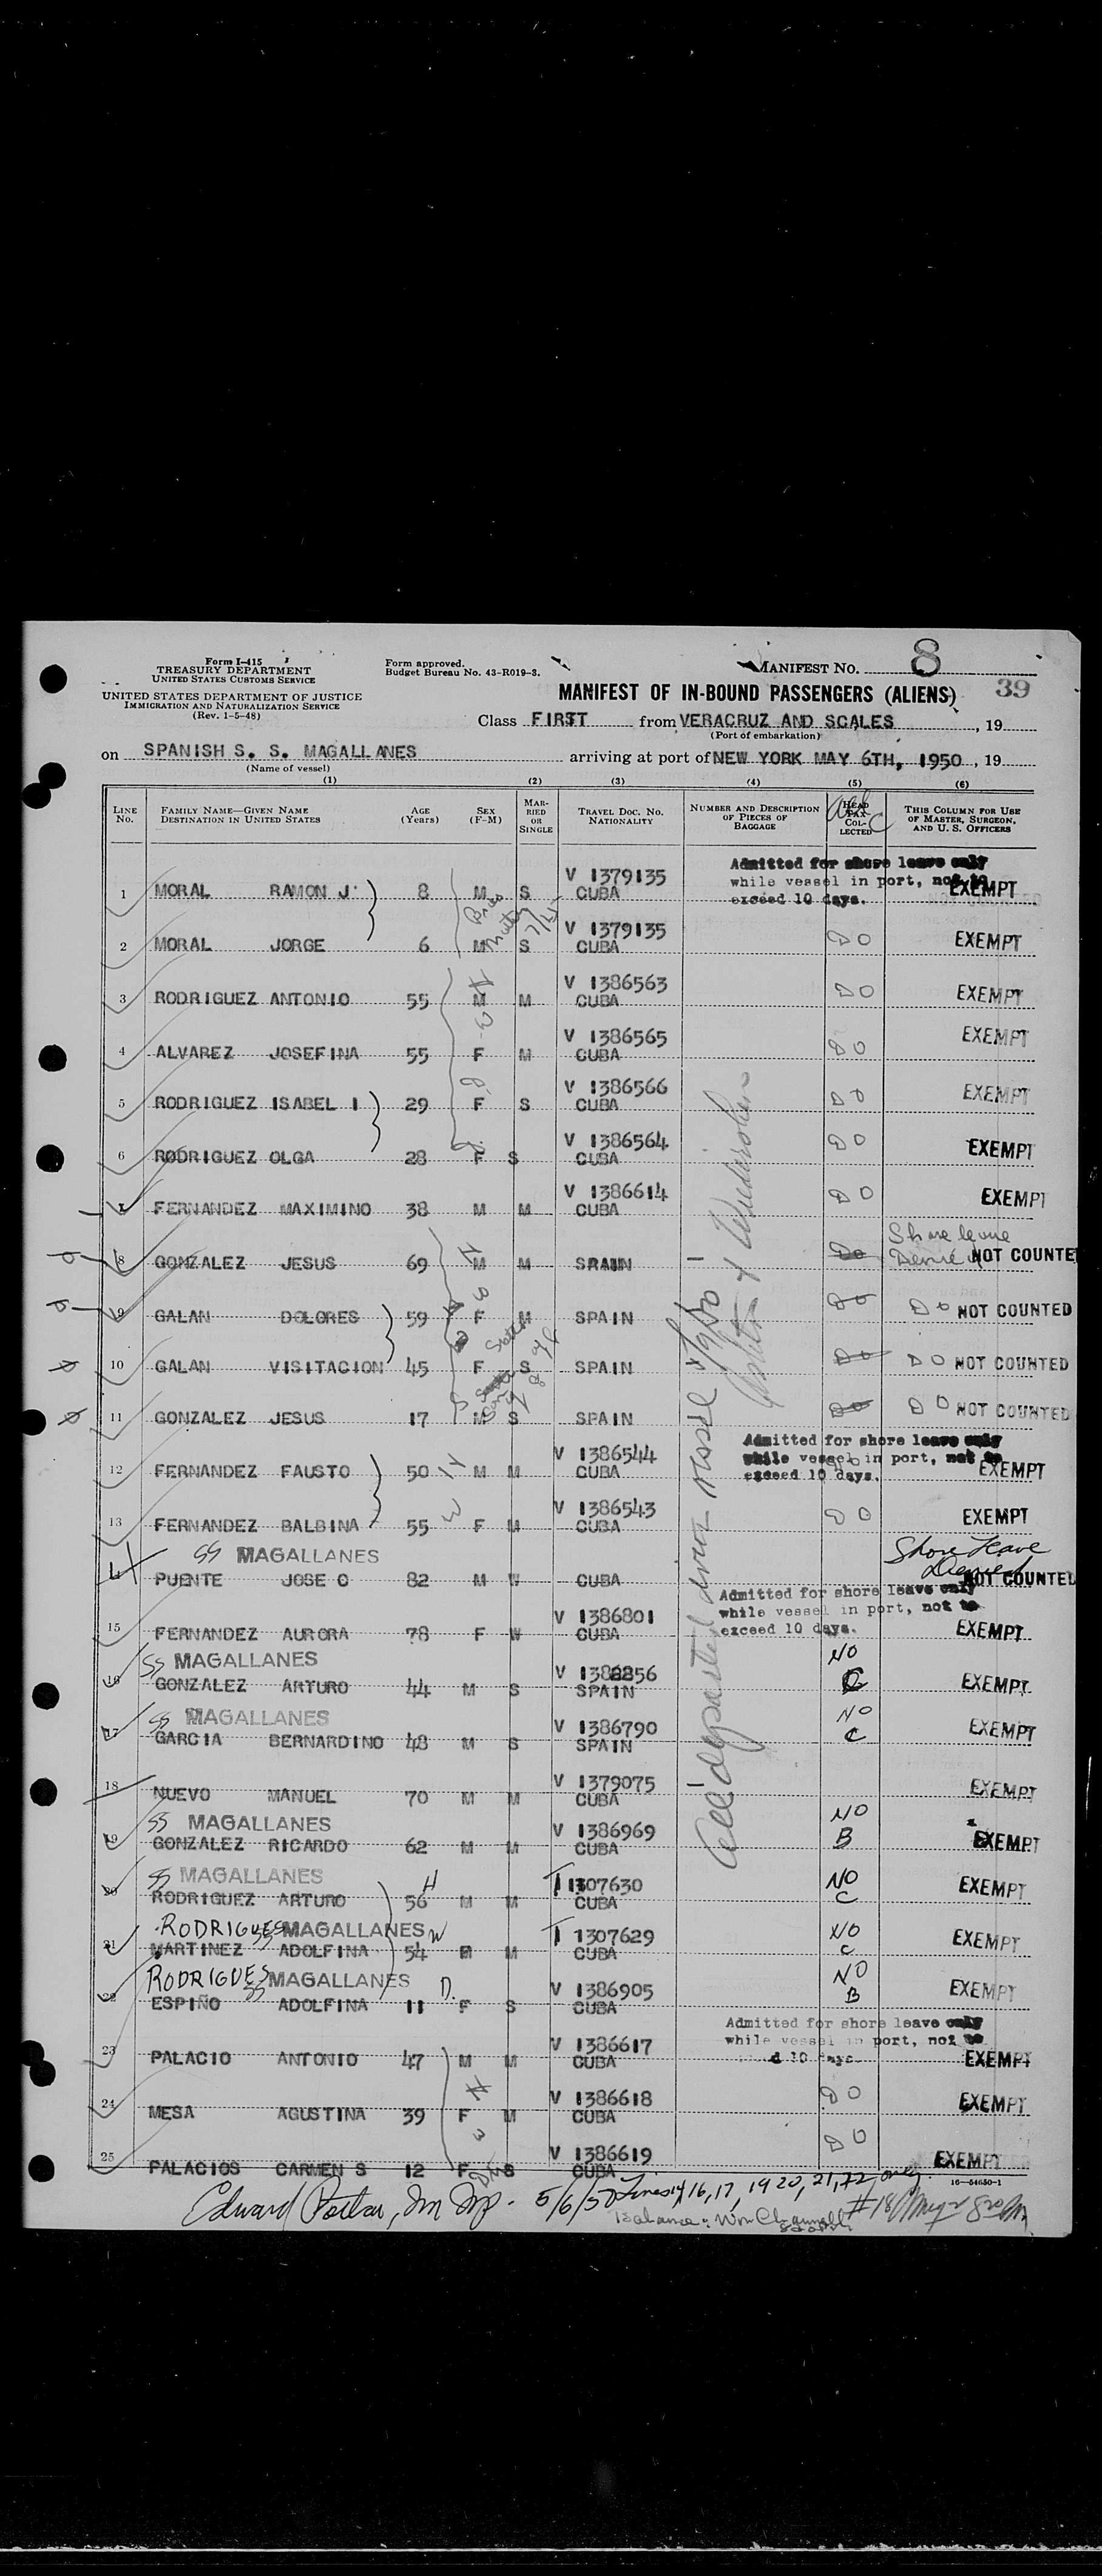 Form I-415
TREASURY DEPARTMENT
UNITED STATES CUSTOMS SERVICE
Form approved.
Budget Bureau No. 43-R019-3.
MANIFEST NO. 8
UNITED STATES DEPARTMENT OF JUSTICE
IMMIGRATION AND NATURALIZATION SERVICE
(Rev. 1-5-48)
MANIFEST OF IN-BOUND PASSENGERS (ALIENS)
39
Class FIRST from VERACRUZ AND SCALES, 19
(Port of embarkation)
on SPANISH S. S. MAGALLANES arriving at port of NEW YORK MAY 6TH, 1950, 19
(Name of vessel)
(1) (2) (3) (4) (5) (6)
LINE NO. FAMILY NAME—GIVEN NAME DESTINATION IN UNITED STATES AGE (Years) SEX (F-M) MARRIED OR SINGLE TRAVEL DOC. NO. NATIONALITY NUMBER AND DESCRIPTION OF PIECES OF BAGGAGE HEAD TAX COLLECTED THIS COLUMN FOR USE OF MASTER, SURGEON, AND U. S. OFFICERS
Admitted for shore leave only
while vessel in port, not to
exceed 10 days.
1 MORAL RAMON J. 8 M S V 1379135 CUBA EXEMPT
2 MORAL JORGE 6 M S V 1379135 CUBA DO EXEMPT
3 RODRIGUEZ ANTONIO 55 M M V 1386563 CUBA DO EXEMPT
4 ALVAREZ JOSEFINA 55 F M V 1386565 CUBA DO EXEMPT
5 RODRIGUEZ ISABEL I 29 F S V 1386566 CUBA DO EXEMPT
6 RODRIGUEZ OLGA 28 F S V 1386564 CUBA DO EXEMPT
7 FERNANDEZ MAXIMINO 38 M M V 1386614 CUBA DO EXEMPT
8 GONZALEZ JESUS 69 M M SPAIN Do Shore leave Denied NOT COUNTE
9 GALAN DOLORES 59 F M SPAIN Do DO NOT COUNTED
10 GALAN VISITACION 45 F S SPAIN Do DO NOT COUNTED
11 GONZALEZ JESUS 17 M S SPAIN Do DO NOT COUNTED
Admitted for shore leave only
while vessel in port, not to
exceed 10 days.
12 FERNANDEZ FAUSTO 50 M M V 1386544 CUBA EXEMPT
13 FERNANDEZ BALBINA 55 F M V 1386543 CUBA DO EXEMPT
SS MAGALLANES
14 PUENTE JOSE O 82 M W CUBA Shore Leave Denied NOT COUNTED
Admitted for shore leave only
while vessel in port, not to
exceed 10 days.
15 FERNANDEZ AURORA 78 F W V 1386801 CUBA EXEMPT
SS MAGALLANES
16 GONZALEZ ARTURO 44 M S SPAIN NO C EXEMPT
SS MAGALLANES
17 GARCIA BERNARDINO 48 M S V 1386790 SPAIN NO C EXEMPT
18 NUEVO MANUEL 70 M M V 1379075 CUBA EXEMPT
SS MAGALLANES
19 GONZALEZ RICARDO 62 M M V 1386969 CUBA NO B EXEMPT
SS MAGALLANES
20 RODRIGUEZ ARTURO 56 H M M T 1307630 CUBA NO C EXEMPT
RODRIGUES SS MAGALLANES W
21 MARTINEZ ADOLFINA 54 M T 1307629 CUBA NO C EXEMPT
RODRIGUES SS MAGALLANES D.
22 ESPIÑO ADOLFINA 11 F S V 1386905 CUBA NO B EXEMPT
Admitted for shore leave only
while vessel in port, not to
d 10 days.
23 PALACIO ANTONIO 47 M M V 1386617 CUBA EXEMPT
24 MESA AGUSTINA 39 F M V 1386618 CUBA DO EXEMPT
25 PALACIOS CARMEN S 12 F S V 1386619 CUBA DO EXEMPT
All departed
16—54650-1
Edward 5/6/50 Lines 14, 16, 17, 19 20, 21, 22 only.
Balance: #18